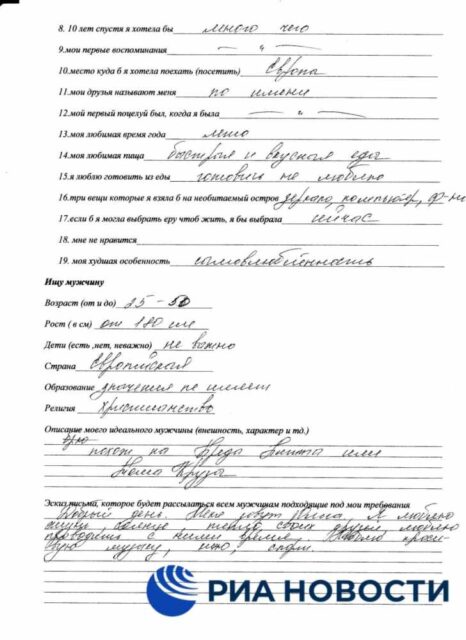 8. 10 лет спустя я хотела бы много чего
9.мои первые воспоминания — " —
10.место куда б я хотела поехать (посетить) Европа
11.мои друзья называют меня по имени
12.мой первый поцелуй был, когда я была — " —
13.моя любимая время года лето
14.моя любимая пища быстрая и вкусная еда
15.я люблю готовить из еды готовить не люблю
16.три вещи которые я взяла б на необитаемый остров зеркало, компьютер,
17.если б я могла выбрать еру чтоб жить, я бы выбрала сейчас
18. мне не нравится
19. моя худшая особенность самовлюблённость
Ищу мужчину
Возраст (от и до) 25 - 50
Рост ( в см) от 180 см
Дети (есть ,нет, неважно) не важно
Страна Европейская
Образование значения не имеет
Религия Христианство
Описание моего идеального мужчины (внешность, характер и тд.)
похож на Бреда Питта или
Тома Круза
Эскиз письма, которое будет рассылаться всем мужчинам подходящие под мои требования
Добрый день. Меня зовут Я люблю
жизнь, тепло, своих друзей, люблю
проводить с ними время. Люблю
музыку, кино,
РИА НОВОСТИ